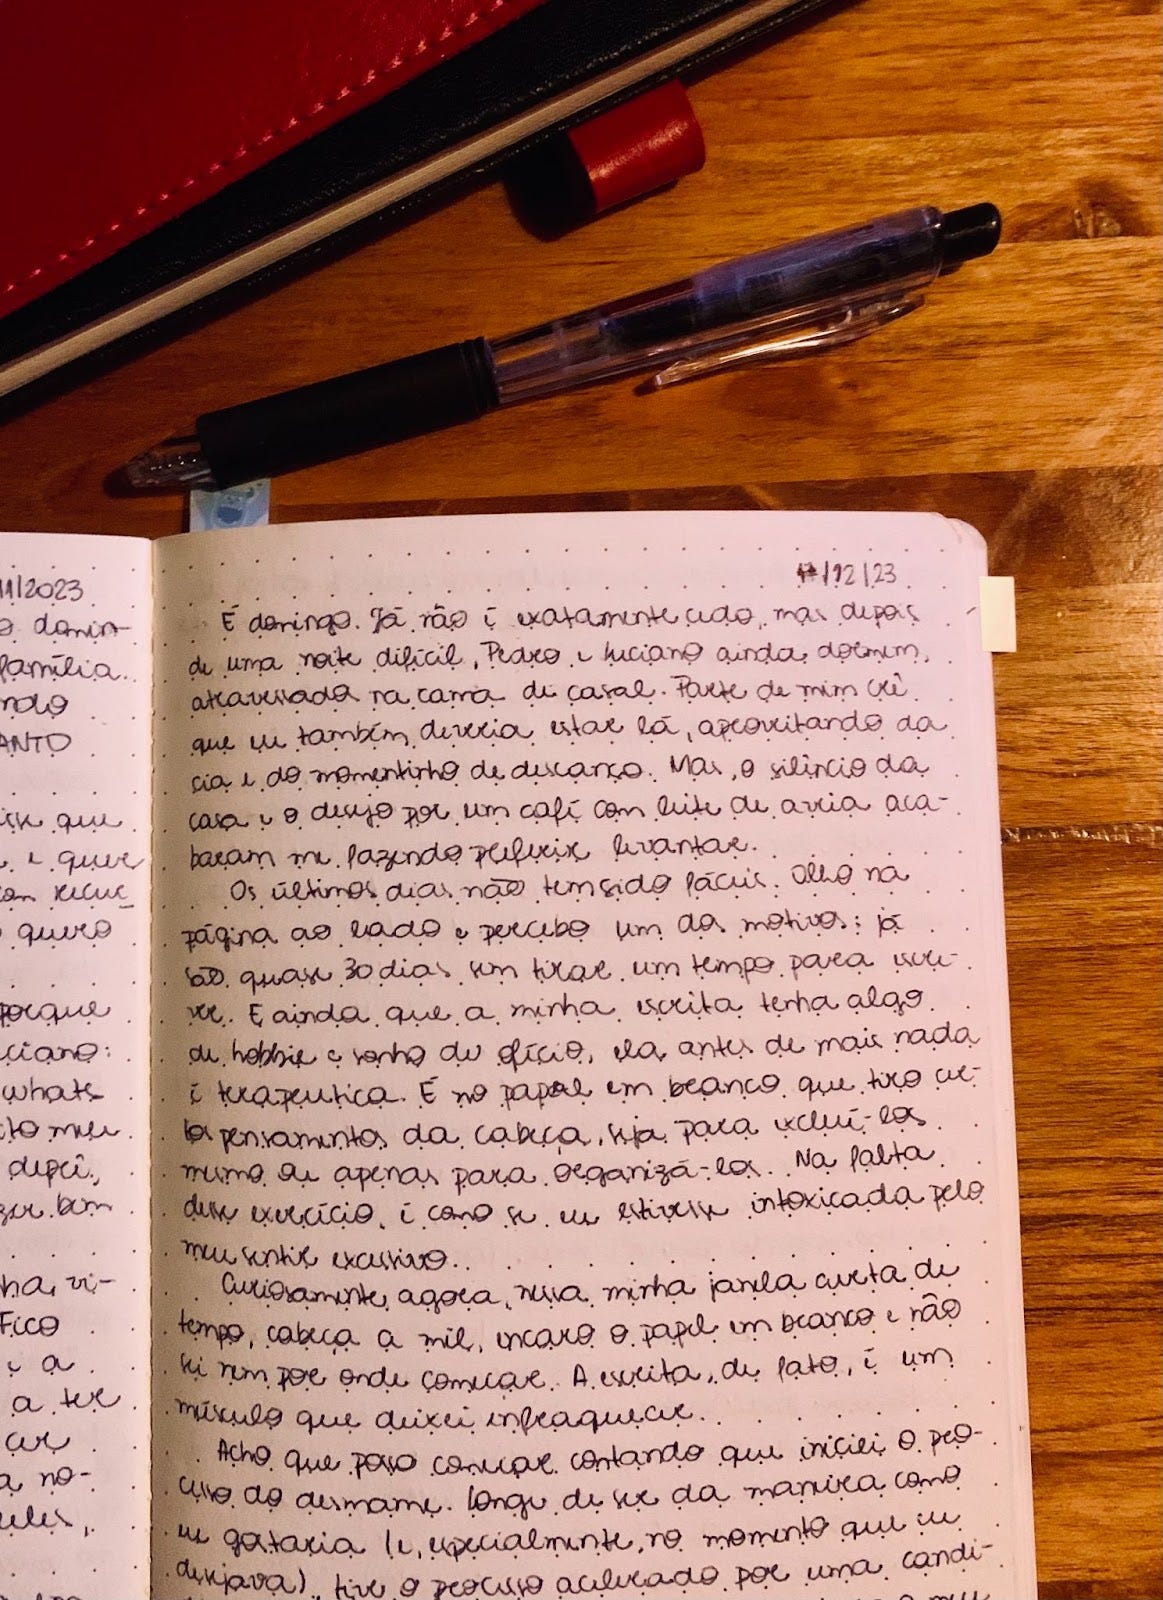 11/2023
o domin-
família.
ndo
ANTO
que
e quer
quero
porque
ciano:
whats
meu
depri,
bem
vi-
Fico
e a
a ter
a no-
eles,
17/12/23
É domingo. Já não é exatamente cedo, mas depois
de uma noite difícil, Pedro e Luciano ainda dormem,
atravessados na cama de casal. Parte de mim crê
que eu também deveria estar lá, aproveitando da
cia e do momentinho de descanço. Mas, o silêncio da
casa e o desejo por um café com leite de aveia aca-
baram me fazendo preferir levantar.
Os últimos dias não tem sido fáceis. Olho na
página ao lado e percebo um dos motivos: já
são quase 30 dias sem tirar um tempo para escre-
ver. E ainda que a minha escrita tenha algo
de hobbie e sonho de ofício, ela, antes de mais nada
é terapeutica. É no papel em branco que tiro cer-
tos pensamentos da cabeça, seja para excluí-los
mesmo ou apenas para organizá-los. Na falta
desse exercício, é como se eu estivesse intoxicada pelo
meu sentir excessivo.
Curiosamente, agora, nessa minha janela curta de
tempo, cabeça a mil, encaro o papel em branco e não
sei nem por onde começar. A escrita, de fato, é um
músculo que deixei enfraquecer.
Acho que posso começar contando que iniciei o pro-
cesso do desmame. Longe de ser da maneira como
eu gostaria (e, especialmente, no momento que eu
desejava), tive o processo acelerado por uma candi-